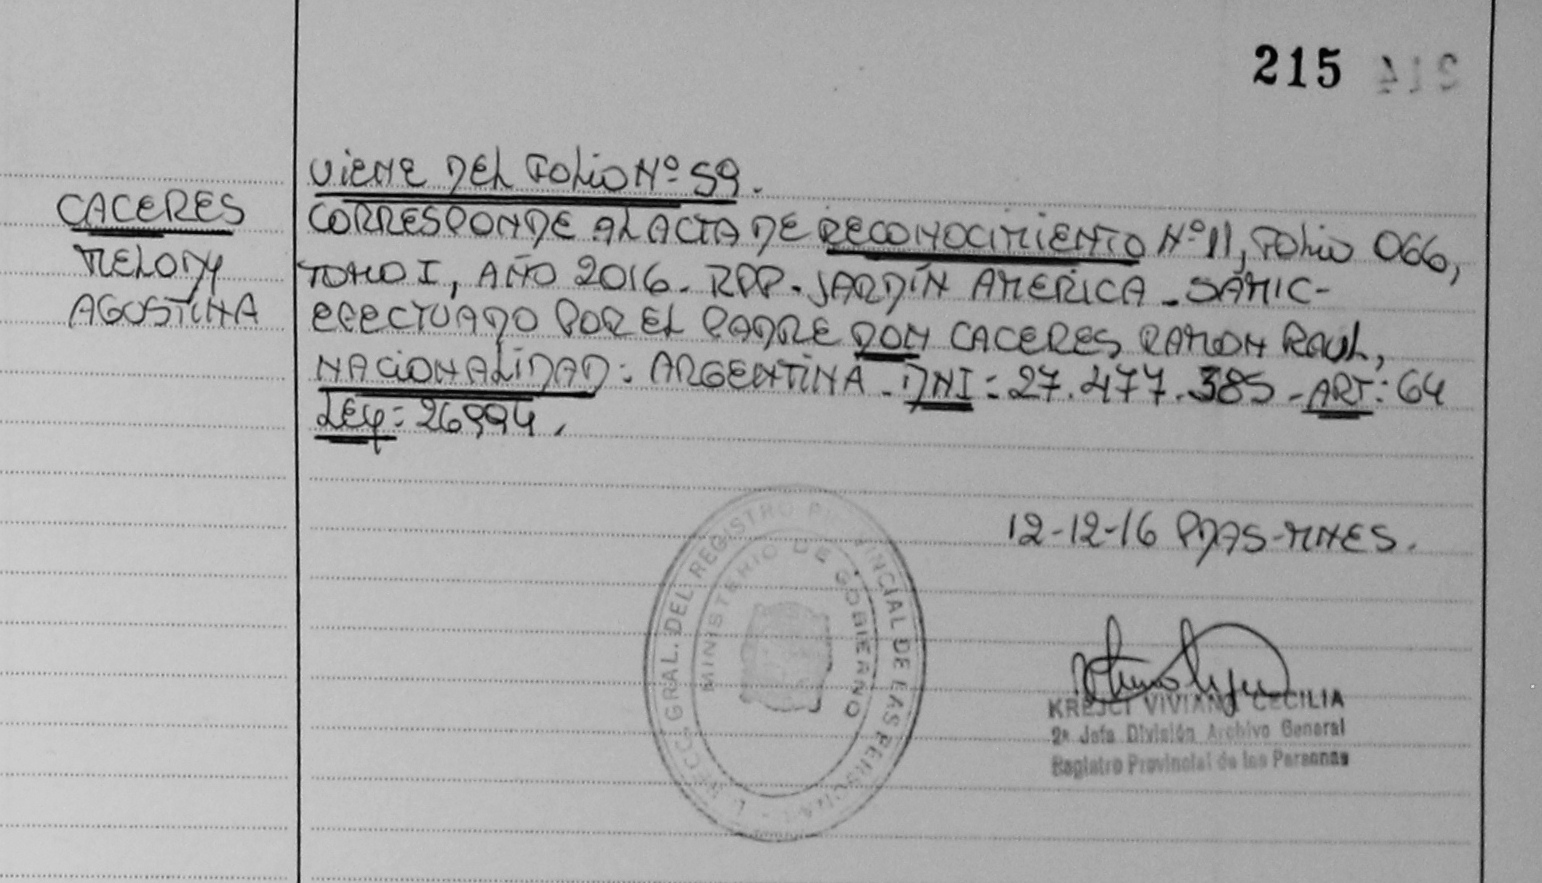 215 214
CACERES
MELODY
AGOSTINA
VIENE DEL FOLIO Nº 59.
CORRESPONDE AL ACTA DE RECONOCIMIENTO Nº 11, FOLIO 066,
TOMO I, AÑO 2016. RPP. JARDÍN AMERICA - SAMIC-
EFECTUADO POR EL PADRE DON CACERES RAMON RAUL,
NACIONALIDAD: ARGENTINA. DNI: 27.477.385 - ART: 64
LEY: 26994.
12-12-16 PDAS-MNES.
GRAL. DEL REGISTRO PROVINCIAL DE LAS PERSONAS
MINISTERIO DE GOBIERNO
KREJCI VIVIANA CECILIA
2ª Jefa División Archivo General
Registro Provincial de las Personas